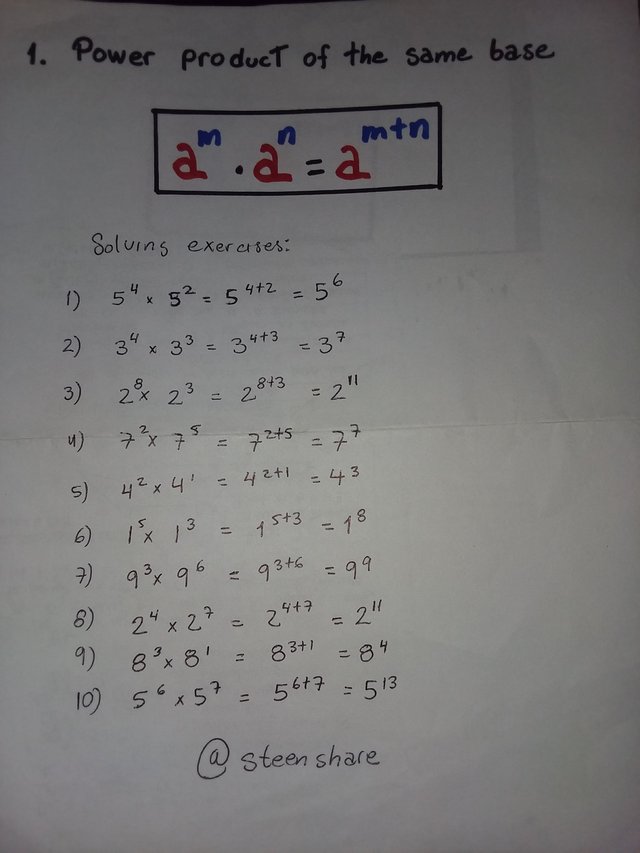 1. Power product of the same base
a^m . a^n = a^m+n
Solving exercises:
1) 5^4 x 5^2 = 5^4+2 = 5^6
2) 3^4 x 3^3 = 3^4+3 = 3^7
3) 2^8 x 2^3 = 2^8+3 = 2^11
4) 7^2 x 7^5 = 7^2+5 = 7^7
5) 4^2 x 4^1 = 4^2+1 = 4^3
6) 1^5 x 1^3 = 1^5+3 = 1^8
7) 9^3 x 9^6 = 9^3+6 = 9^9
8) 2^4 x 2^7 = 2^4+7 = 2^11
9) 8^3 x 8^1 = 8^3+1 = 8^4
10) 5^6 x 5^7 = 5^6+7 = 5^13
@steenshare